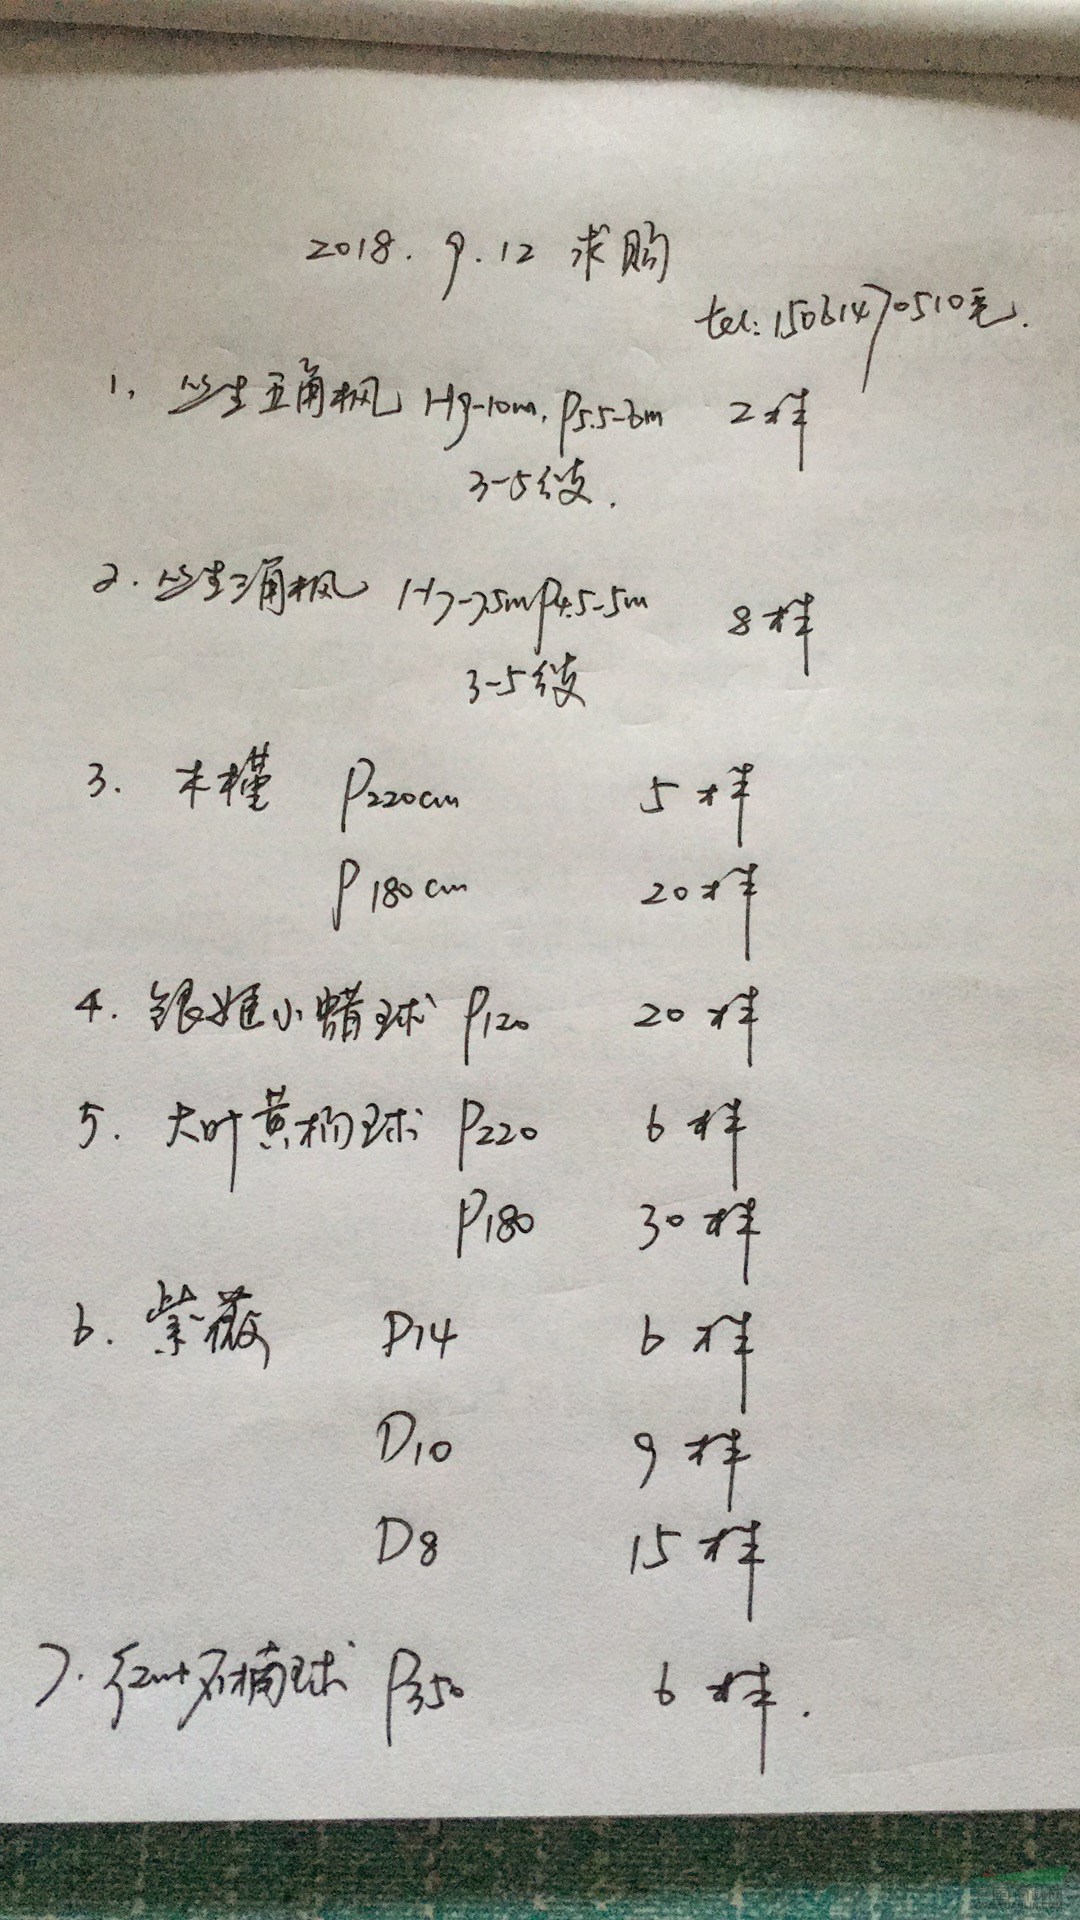 2018.9.12 求购
tel:15061470510毛.
1. 丛生五角枫 H9-10m. P5.5-6m 2样
3-5级支.
2. 丛生三角枫 H7-7.5m P4.5-5m 8样
3-5级支
3. 木槿 P220cm 5样
P180cm 20样
4. 银姬小蜡球 P120 20样
5. 大叶黄杨球 P220 6样
P180 30样
6. 紫薇 D14 6样
D10 9样
D8 15样
7. 红叶石楠球 P350 6样.